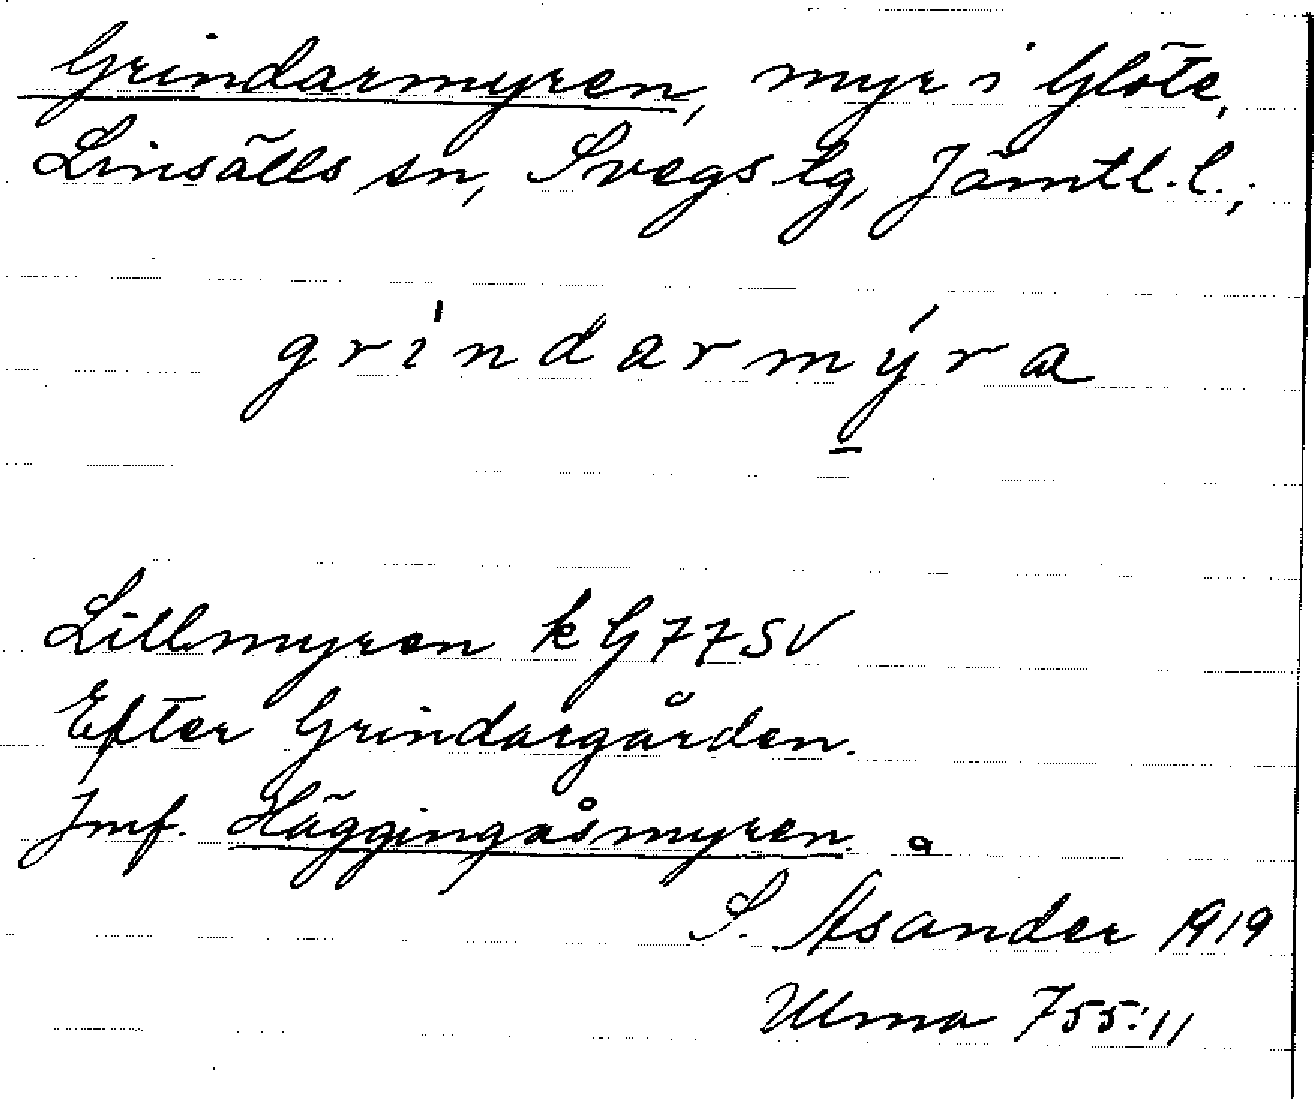 Grindarmyren, myr i Glöte,
Linsälls sn, Svegs tg, Jämtl. l.;
grindarmýra
Lillmyren k G77SV
Efter Grindargården.
Jmf. Häggingåsmyren.
S. Åsander 1919
Ulma 755:11